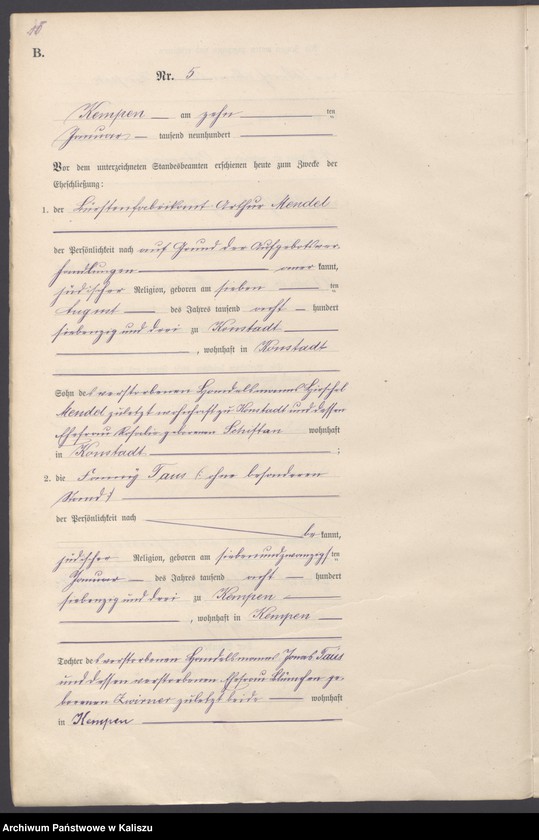 18
B.
Nr. 5
Kempen am zehn ten
Januar tausend neunhundert
Vor dem unterzeichneten Standesbeamten erschienen heute zum Zwecke der
Eheschließung:
1. der Bürstenfabrikant Arthur Mendel
der Persönlichkeit nach auf Grund der Aufgebotsver
handlungen aner kannt,
jüdischer Religion, geboren am sieben ten
August des Jahres tausend acht hundert
siebenzig und drei zu Konstadt
, wohnhaft in Konstadt
Sohn des verstorbenen Handelsmanns Hirschel
Mendel zuletzt wohnhaft zu Konstadt und dessen
Ehefrau Rosalie geborenen wohnhaft
in Konstadt ;
2. die Fanny Taus (ohne besonderen
Stand)
der Persönlichkeit nach
be kannt,
jüdischer Religion, geboren am siebenundzwanzigs ten
Januar des Jahres tausend acht hundert
siebenzig und drei zu Kempen
, wohnhaft in Kempen
Tochter des verstorbenen Handelsmanns Jonas Taus
und dessen verstorbenen Ehefrau Blümchen ge
borenen Zwirner zuletzt beide wohnhaft
in Kempen
Archiwum Państwowe w Kaliszu